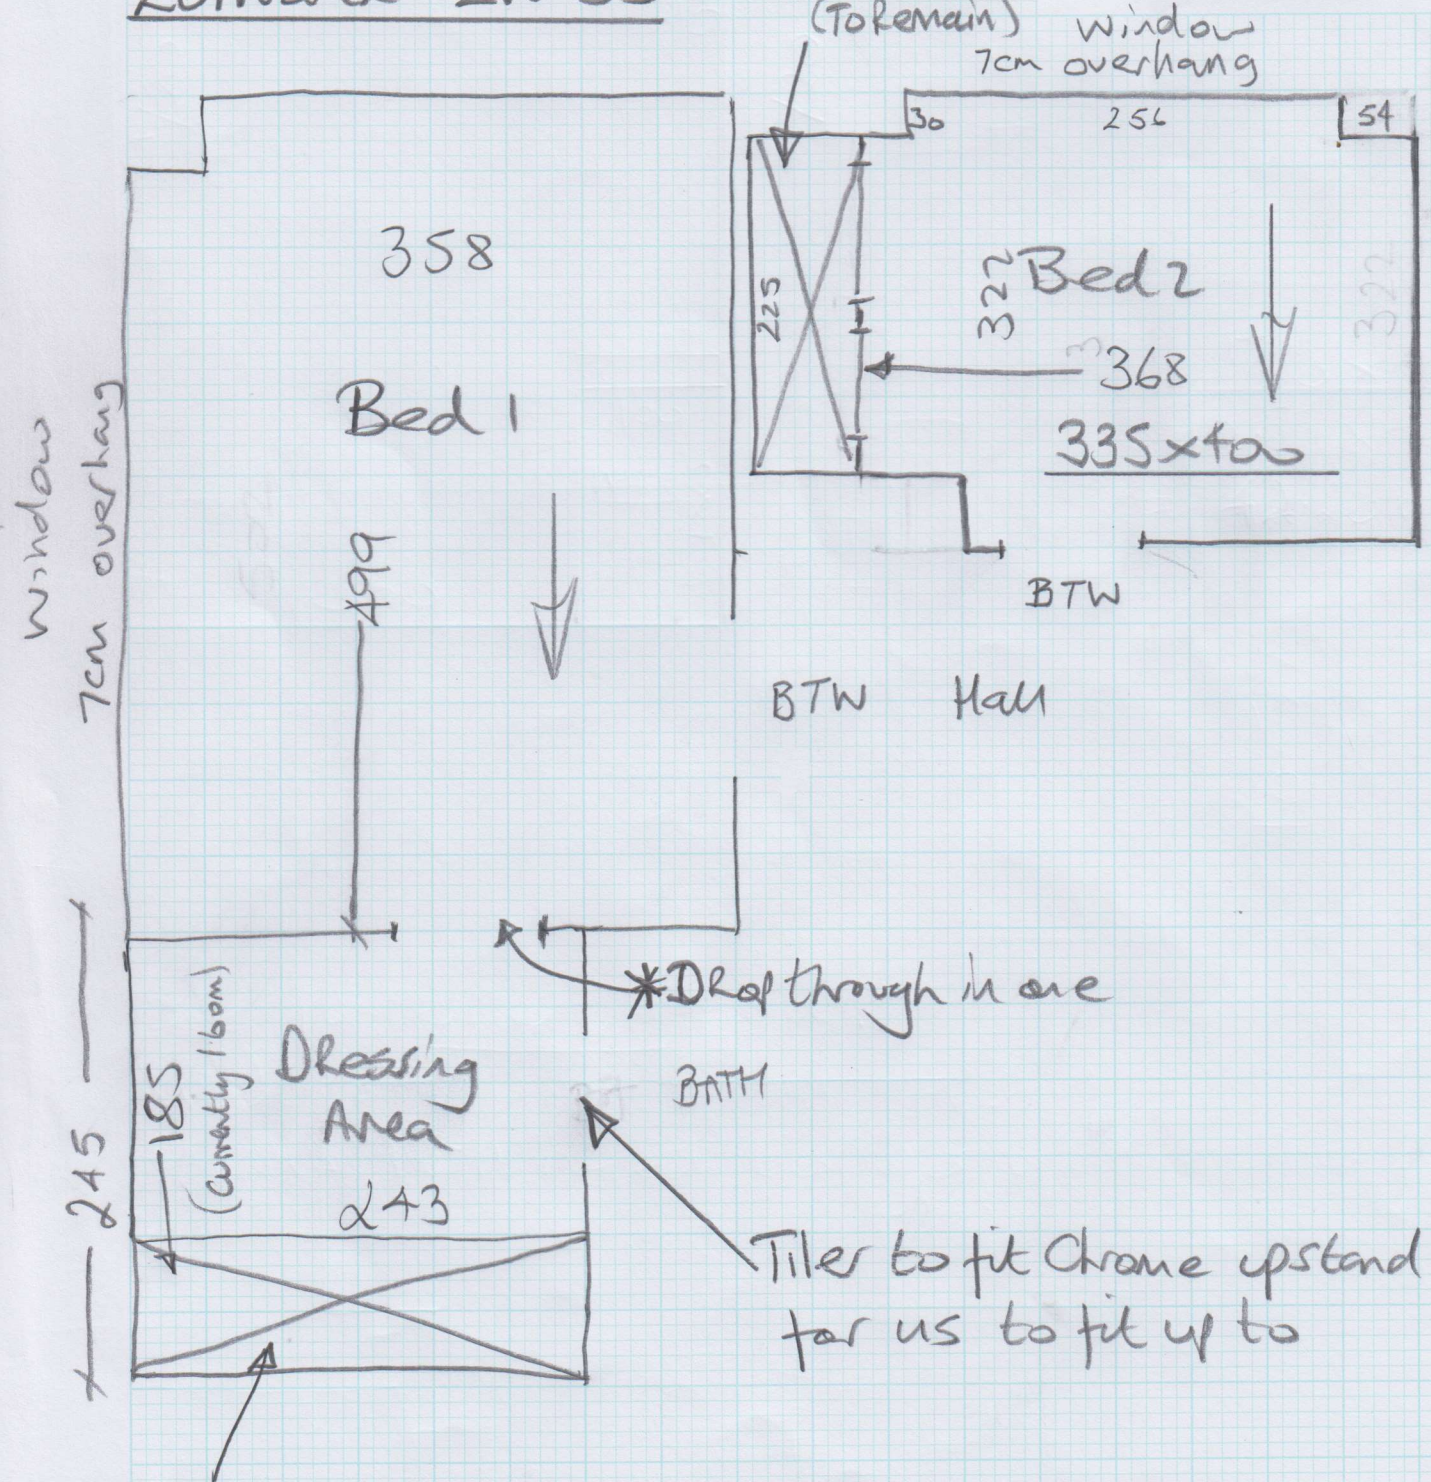 (To Remain)
window
7cm overhang
30
256
54
358
225
322
Bed 2
322
368
335x400
Bed 1
window
7cm overhang
499
BTW
BTW Hall
*Drop through in one
185
(currently 160m)
Dressing
Area
BATH
243
245
Tiler to fit Chrome upstand
for us to fit up to